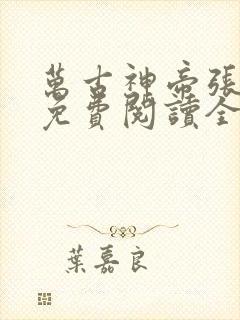 萬古神帝張
免費閱讀全
葉嘉良